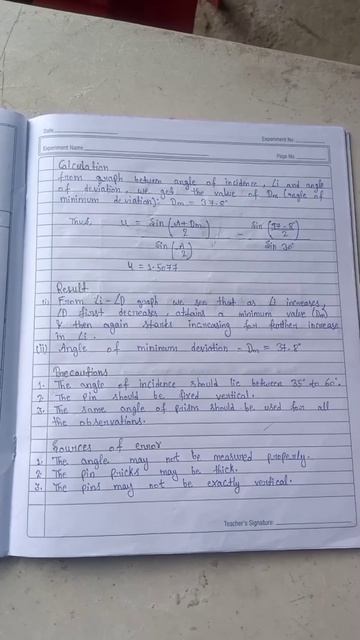 Date
Experiment No.
Experiment Name
Page No.
Calculation
From graph between angle of incidence, ∠i and angle
of deviation, we get the value of Dm (angle of
minimum deviation): Dm = 37.8°
Thus, u = Sin (A+Dm/2) / Sin (A/2) = Sin (97.8/2) / Sin 30°
u = 1.5077
Result
(i) From ∠i-∠D graph we see that as ∠i increases,
∠D first decreases, attains a minimum value (Dm)
& then again starts increasing for further increase
in ∠i.
(ii) Angle of minimum deviation - Dm = 37.8°
Precautions
1. The angle of incidence should lie between 35° to 60°.
2. The pin should be fixed vertical.
3. The same angle of prism should be used for all
the observations.
Sources of error
1. The angle may not be measured properly.
2. The pin pricks may be thick.
3. The pins may not be exactly vertical.
Teacher's Signature